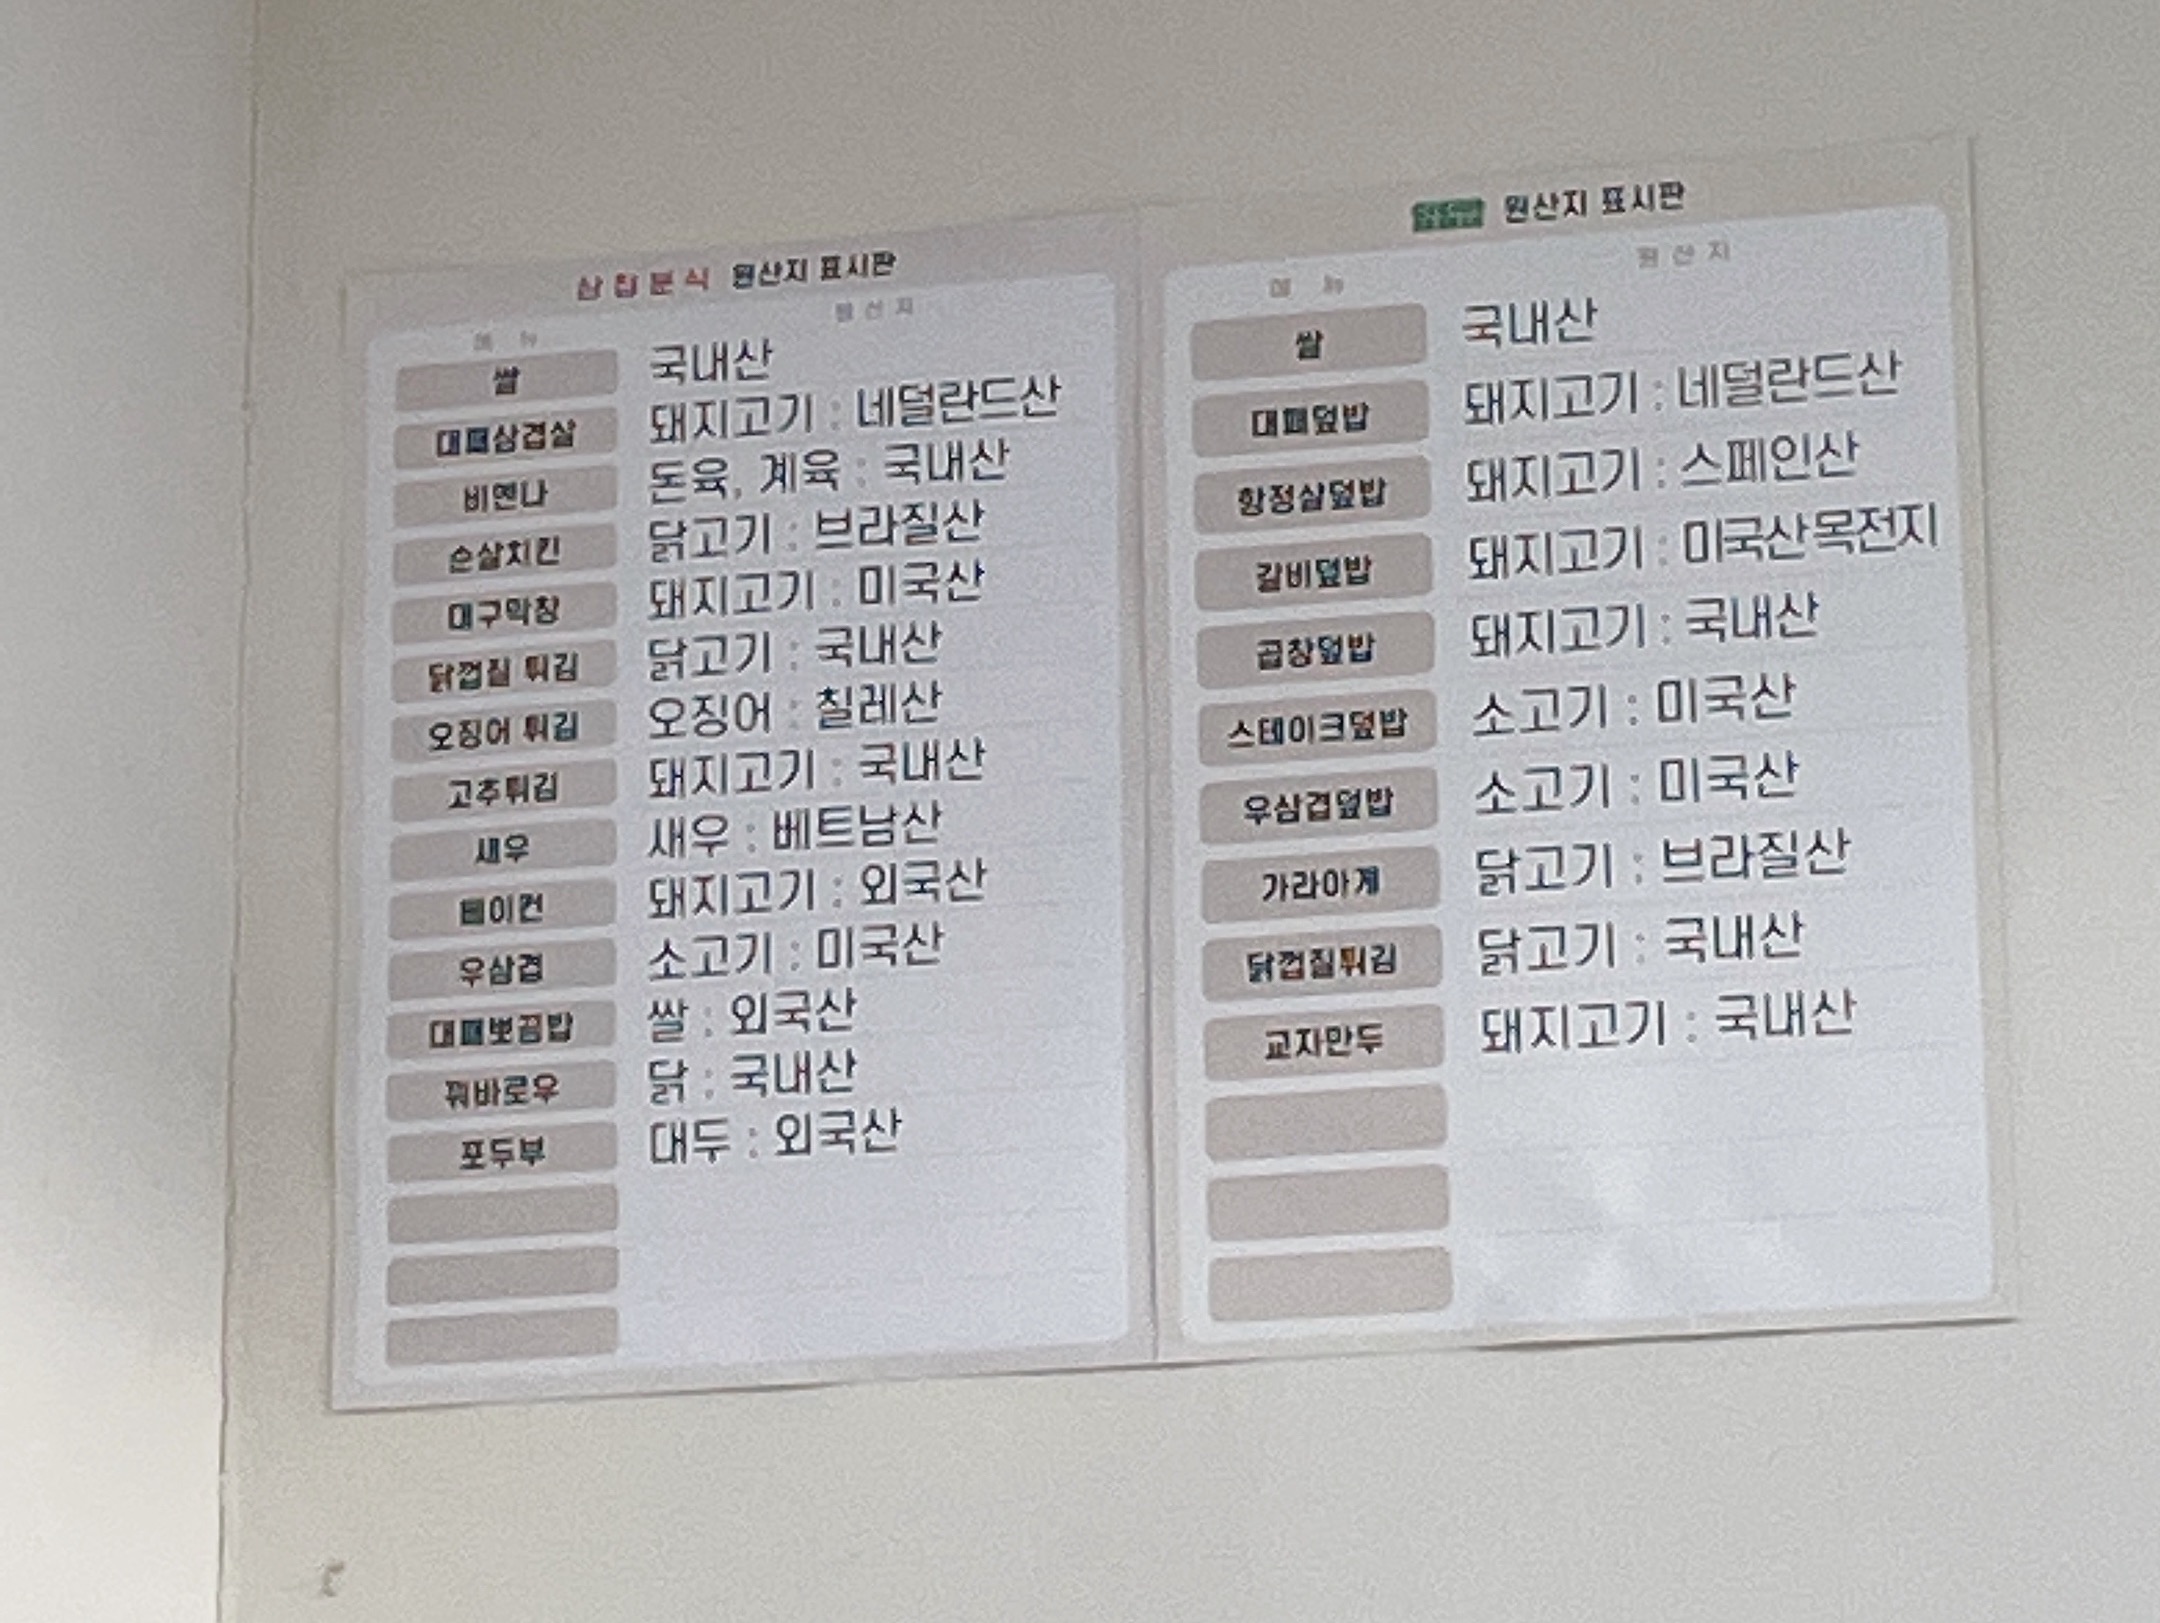 삼첩분식 원산지 표시판
메 뉴 원 산 지
쌀 국내산
대패삼겹살 돼지고기 : 네덜란드산
비엔나 돈육, 계육 : 국내산
순살치킨 닭고기 : 브라질산
대구막창 돼지고기 : 미국산
닭껍질 튀김 닭고기 : 국내산
오징어 튀김 오징어 : 칠레산
고추튀김 돼지고기 : 국내산
새우 새우 : 베트남산
베이컨 돼지고기 : 외국산
우삼겹 소고기 : 미국산
대패뽀끔밥 쌀 : 외국산
꿔바로우 닭 : 국내산
포두부 대두 : 외국산
원산지 표시판
메 뉴 원 산 지
쌀 국내산
대패덮밥 돼지고기 : 네덜란드산
항정살덮밥 돼지고기 : 스페인산
갈비덮밥 돼지고기 : 미국산목전지
곱창덮밥 돼지고기 : 국내산
스테이크덮밥 소고기 : 미국산
우삼겹덮밥 소고기 : 미국산
가라아게 닭고기 : 브라질산
닭껍질튀김 닭고기 : 국내산
교자만두 돼지고기 : 국내산